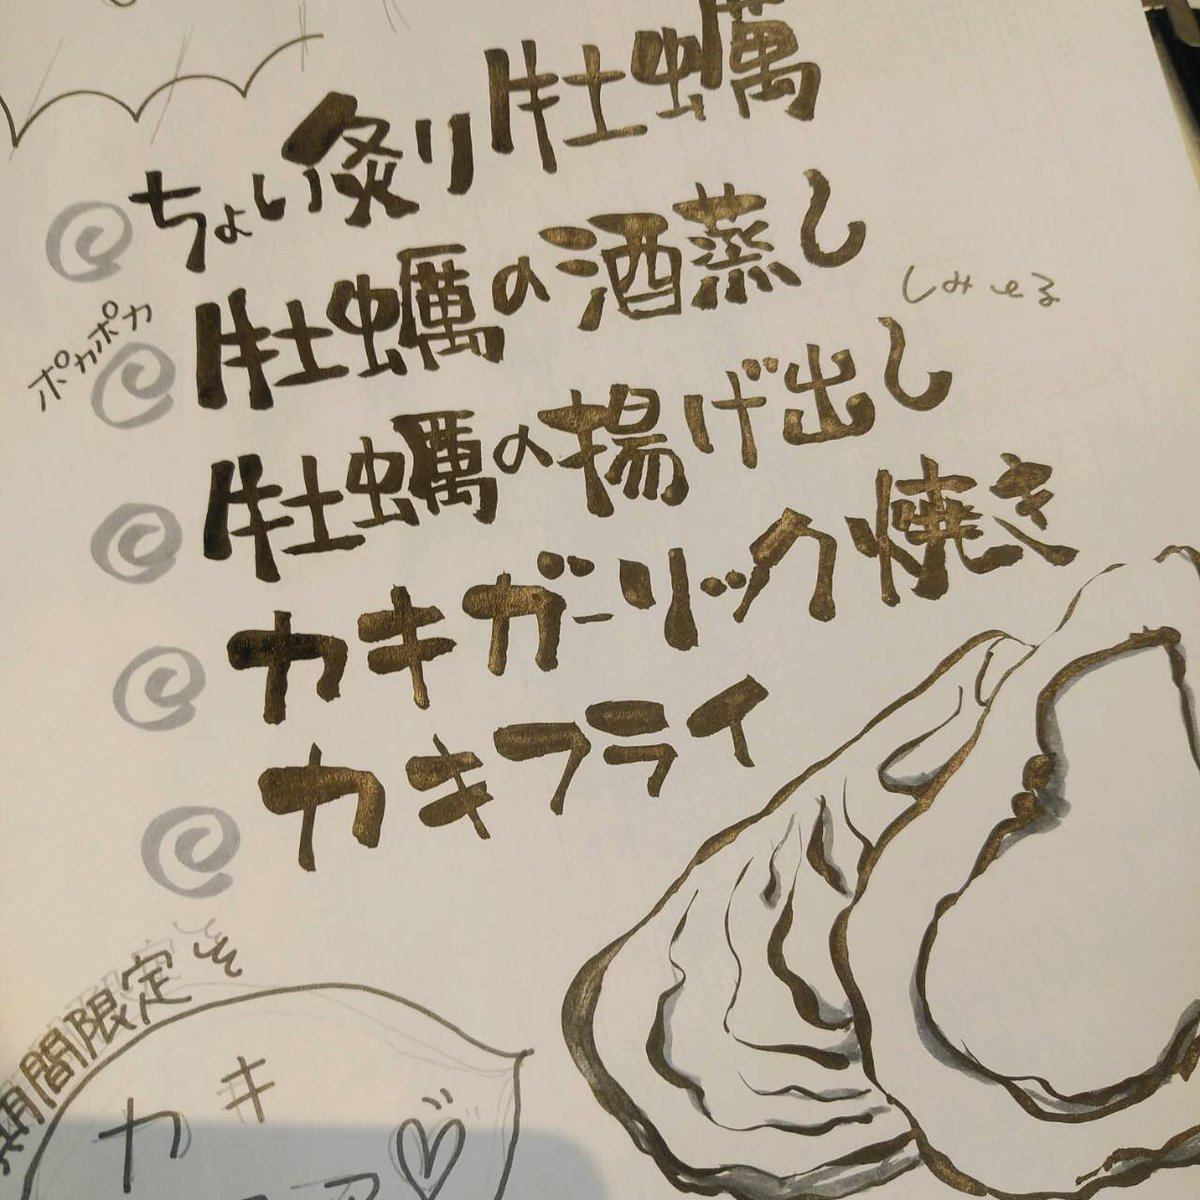 ちょい炙り牡蠣
牡蠣の酒蒸し
ポカポカ
しみ〜る
牡蠣の揚げ出し
カキガーリック焼き
カキフライ
期間限定
カキ